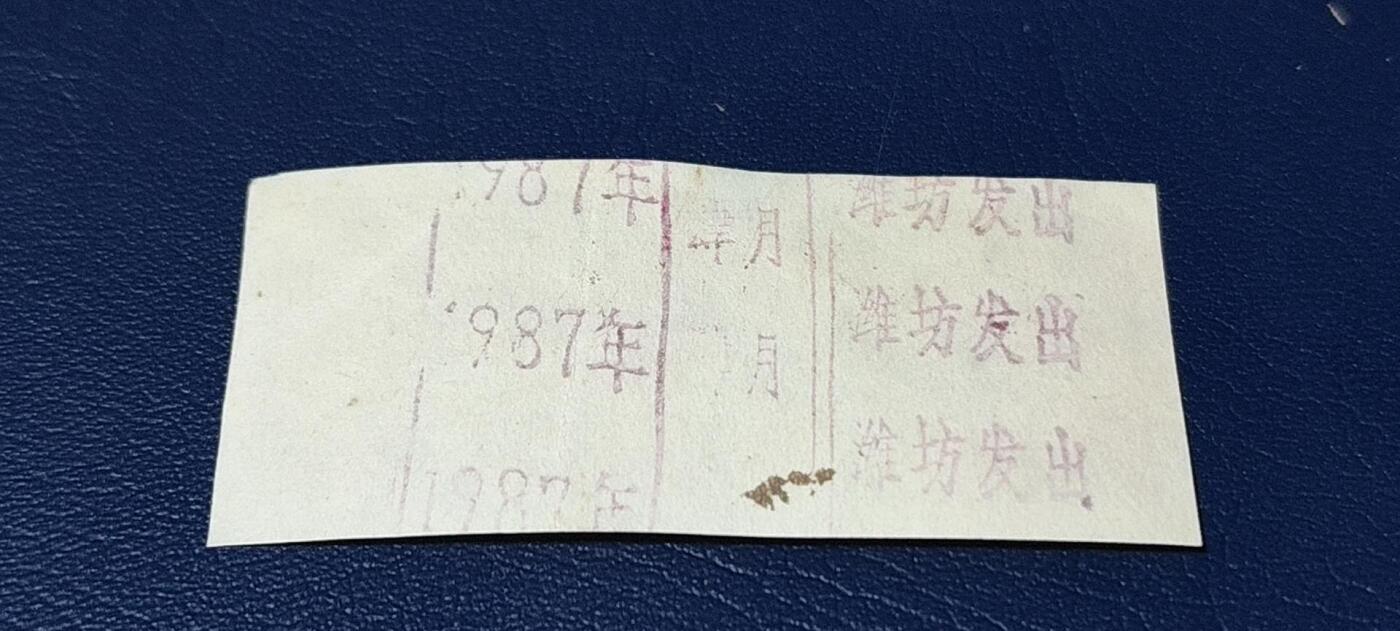 987年 月 潍坊发出
987年 月 潍坊发出
1987年 潍坊发出